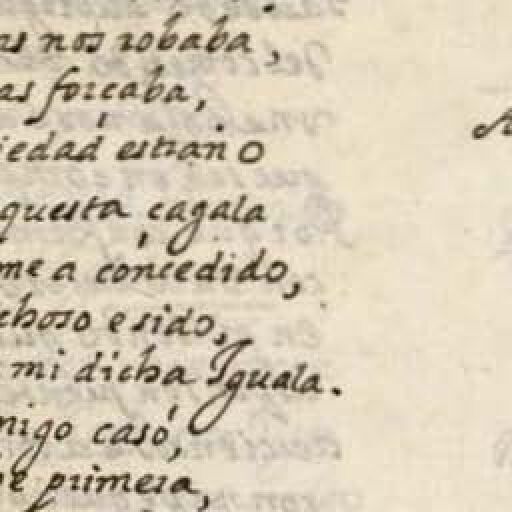 nos robaba,
as forçaba,
iedad estraño
questa çagala
me a conçedido,
choso e sido,
mi dicha Iguala.
migo casó,
primera,